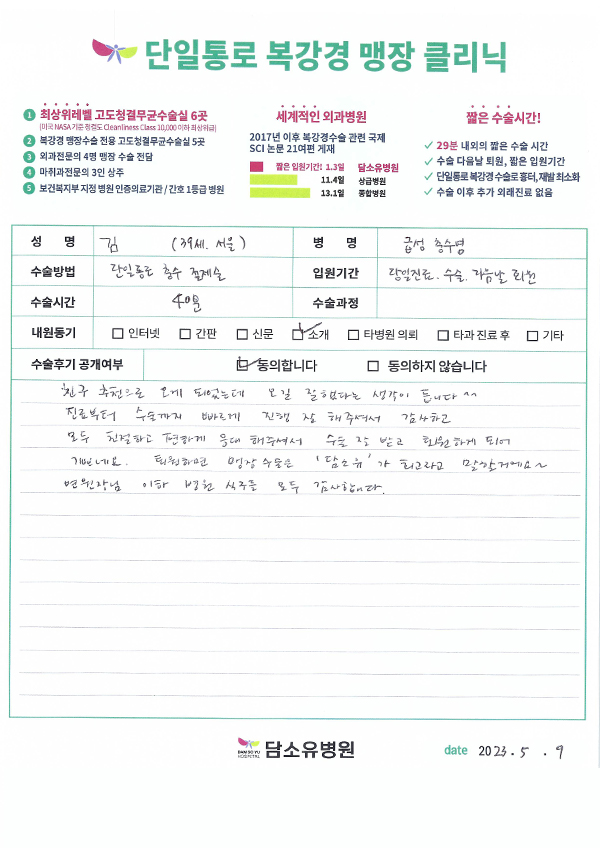 단일통로 복강경 맹장 클리닉
1 최상위레벨 고도청결무균수술실 6곳
(미국 NASA 기준 청결도 Cleanliness Class 10,000 이하 최상위급)
2 복강경 맹장수술 전용 고도청결무균수술실 5곳
3 외과전문의 4명 맹장 수술 전담
4 마취과전문의 3인 상주
5 보건복지부 지정 병원 인증의료기관 / 간호 1등급 병원
세계적인 외과병원
2017년 이후 복강경수술 관련 국제
SCI 논문 21여편 게재
짧은 입원기간! 1.3일 담소유병원
11.4일 상급병원
13.1일 종합병원
짧은 수술시간!
29분 내외의 짧은 수술 시간
수술 다음날 퇴원, 짧은 입원기간
단일통로 복강경 수술로 흉터, 재발 최소화
수술 이후 추가 외래진료 없음
성 명 김 (39세. 서울) 병 명 급성 충수염
수술방법 단일통로 충수 절제술 입원기간 당일진료. 수술. 다음날 퇴원
수술시간 40분 수술과정
내원동기 인터넷 간판 신문 소개 타병원 의뢰 타과 진료 후 기타
수술후기 공개여부 동의합니다 동의하지 않습니다
친구 추천으로 오게 되었는데 오길 잘했다는 생각이 듭니다 ^^
진료부터 수술까지 빠르게 진행 잘 해주셔서 감사하고
모두 친절하고 편하게 응대 해주셔서 수술 잘 받고 퇴원하게 되어
기쁘네요. 퇴원하면 맹장수술은 '담소유'가 최고라고 말할거예요~
변원장님 이하 병원 식구들 모두 감사합니다.
DAM SO YU
HOSPITAL
담소유병원
date 2023. 5 . 9